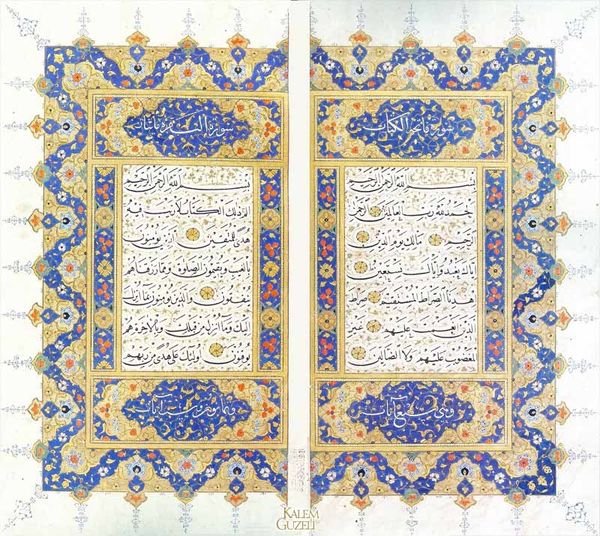 سورة فاتحة الكتاب
بسم الله الرحمن الرحيم
الحمد لله رب العالمين الرحمن
الرحيم مالك يوم الدين
اياك نعبد واياك نستعين
اهدنا الصراط المستقيم صراط
الذين انعمت عليهم غير
المغضوب عليهم ولا الضالين
وهي سبع آيات
سورة البقرة مائتان
بسم الله الرحمن الرحيم
الم ذلك الكتاب لا ريب فيه
هدى للمتقين الذين يومنون
بالغيب ويقيمون الصلوة ومما رزقناهم
ينفقون والذين يومنون بما انزل
اليك وما انزل من قبلك وبالاخرة هم
يوقنون اولئك على هدى من ربهم
وثمانون وست آيات
KALEM
GUZELI